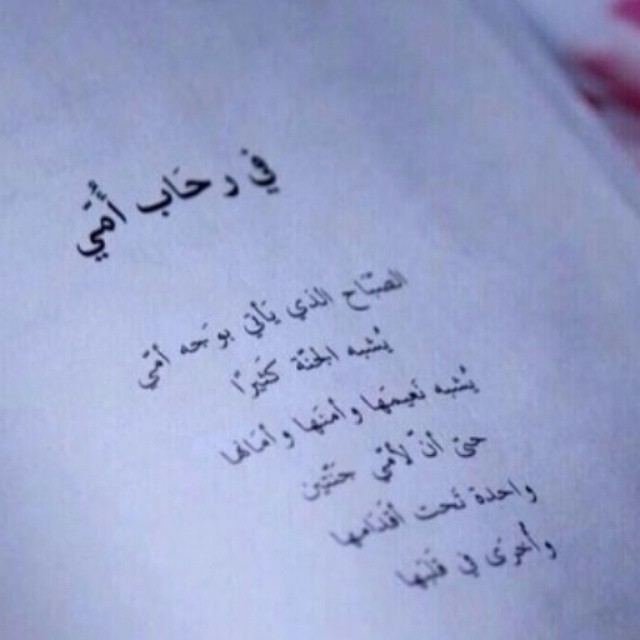 في رحَاب أمّي
الصبّاح الذي يأتي بوَجه أمّي
يُشبه الجنّة كثيرًا
يُشبه نعيمهَا وأمنهَا وأمَانها
حتى أنّ لأمّي جنّتين
واحدة تحت أقدَامها
وأخرى في قلبهَا